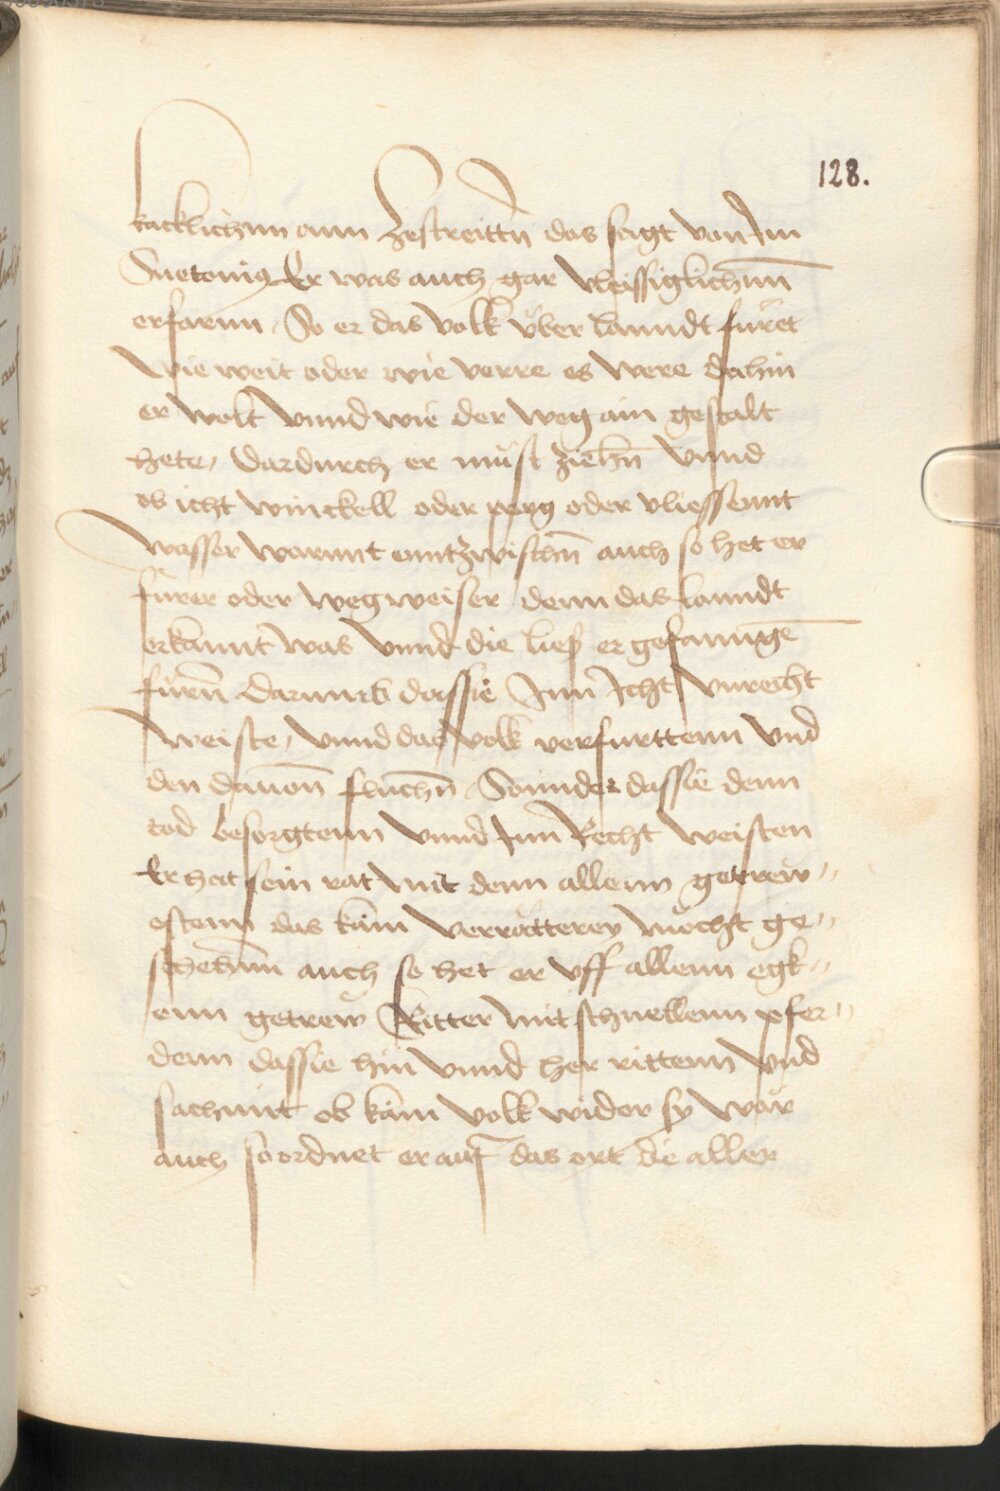 128.
kacklichnn ann zestreittn̄ das sagt von Im
Suetonius Er was auch gar vleissiglichnn̄
erfarnn So er das volk vͤber lanndt furet
wie weit oder wie verre es were dahin
er wolt vnnd wie der weg ain gestalt
hete, dardurch er müst ziehn̄ vnnd
ob icht winckell oder perg oder vliessennt
wasser warnnt enntzwischn̄ auch so het er
fürer oder weg weiser denn das lanndt
erkannt was vnnd die lies er gefanngē
fürn̄ darumb dassie Inn Icht vnrecht
weiste, vnnd das volk verfurttenn vnd
den dauon̄ fluchn̄ Sonnder dassie denn
tod besorgtenn vnnd Inn Recht weisten
Er hat sein rat mit denn allenn getrew„
ostenn das kain verrätterey möcht ge„
schehnn̄ auch so het er vff allenn egk„
enn getrew Ritter mit schnellenn pfer„
denn dassie hin vnnd her rittenn vnd
sachnnt ob kain volk wider sy wär
auch so ordnet er auf das ort die aller